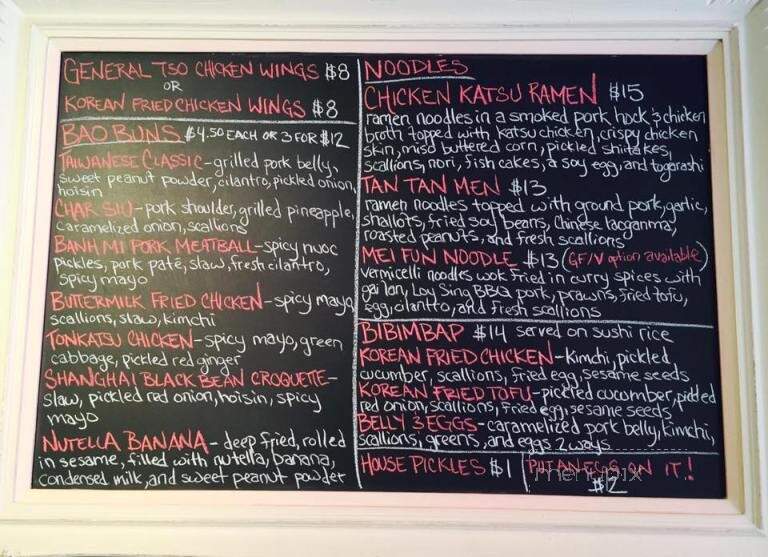 GENERAL TSO CHICKEN WINGS $8
OR
KOREAN FRIED CHICKEN WINGS $8
BAO BUNS $4.50 EACH OR 3 FOR $12
TAIWANESE CLASSIC-grilled pork belly,
sweet peanut powder, cilantro, pickled onion,
hoisin
CHAR SIU-pork shoulder, grilled pineapple,
caramelized onion, scallions
BANH MI PORK MEATBALL-spicy nuoc
pickles, pork paté, slaw, fresh cilantro,
spicy mayo
BUTTERMILK FRIED CHICKEN-spicy mayo,
scallions, slaw, kimchi
TONKATSU CHICKEN-spicy mayo, green
cabbage, pickled red ginger
SHANGHAI BLACK BEAN CROQUETTE-
slaw, pickled red onion, hoisin, spicy
mayo
NUTELLA BANANA-deep fried, rolled
in sesame, filled with nutella, banana,
condensed milk, and sweet peanut powder
NOODLES
CHICKEN KATSU RAMEN $15
ramen noodles in a smoked pork hock & chicken
broth topped with katsu chicken, crispy chicken
skin, miso buttered corn, pickled shiitakes,
scallions, nori, fish cakes, a soy egg, and togarashi
TAN TAN MEN $13
ramen noodles topped with ground pork, garlic,
shallots, fried soy beans, Chinese laoganma,
roasted peanuts, and fresh scallions
MEI FUN NOODLE $13 (GF/V option available)
vermicelli noodles wok fried in curry spices with
gai lan, Lou Sing BBQ pork, prawns, fried tofu,
egg, cilantro, and fresh scallions
BIBIMBAP $14 served on sushi rice
KOREAN FRIED CHICKEN-Kimchi, pickled
cucumber, scallions, fried egg, sesame seeds
KOREAN FRIED TOFU-pickled cucumber, pickled
red onion, scallions, fried egg, sesame seeds
BELLY & EGGS-caramelized pork belly, kimchi,
scallions, greens, and eggs 2 ways
HOUSE PICKLES $1
PUT AN EGG ON IT!
$2
menupix